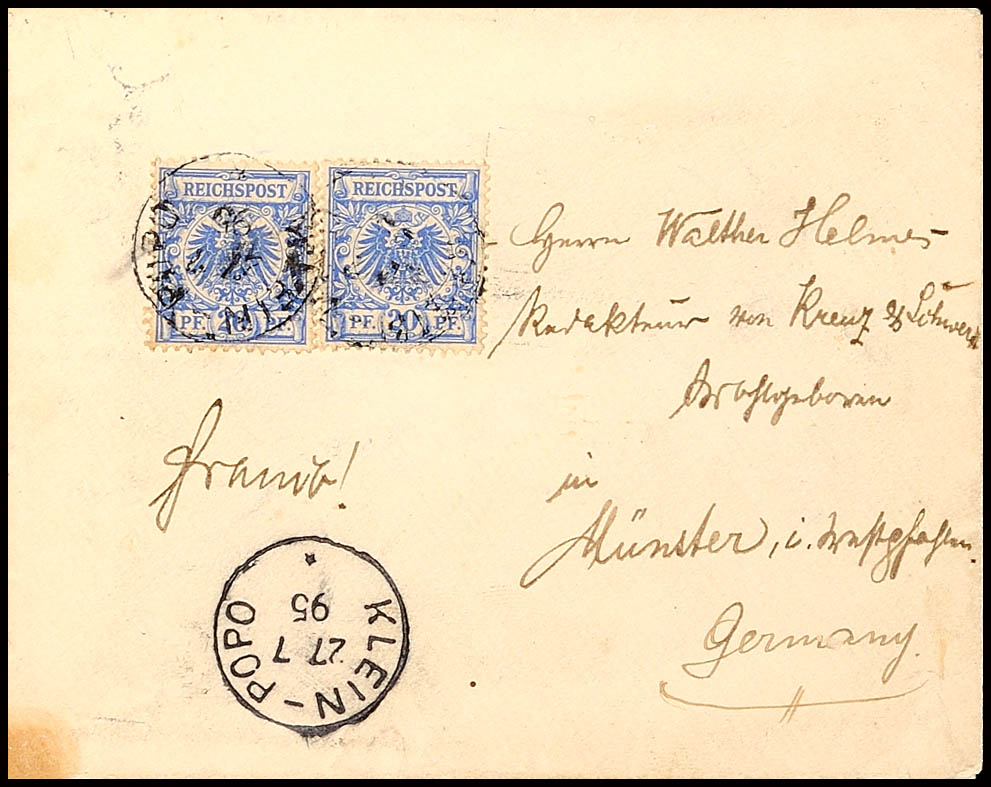 REICHSPOST REICHSPOST
PF. 20 PF. PF. 20 PF.
Herrn Walther Helmes
Redakteur von Kreuz & Schwert
Wohlgeboren
in
Münster, i. Westpfahlen.
Germany.
Franco!
KLEIN-POPO
27 7
95